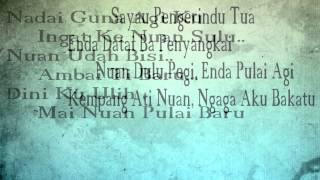 Nadai Guna Agi Ke
Ingat Ke Nuan Sulu..
Nuan Udah Bisi..
Ambai Ti Baru
Dini Ku Ulih
Mai Nuan Pulai Baru
Sayau Pengerindu Tua
Enda Datai Ba Penyangkai
Nuan Dulu Pegi, Enda Pulai Agi
Kempang Ati Nuan, Ngaga Aku Bakatu